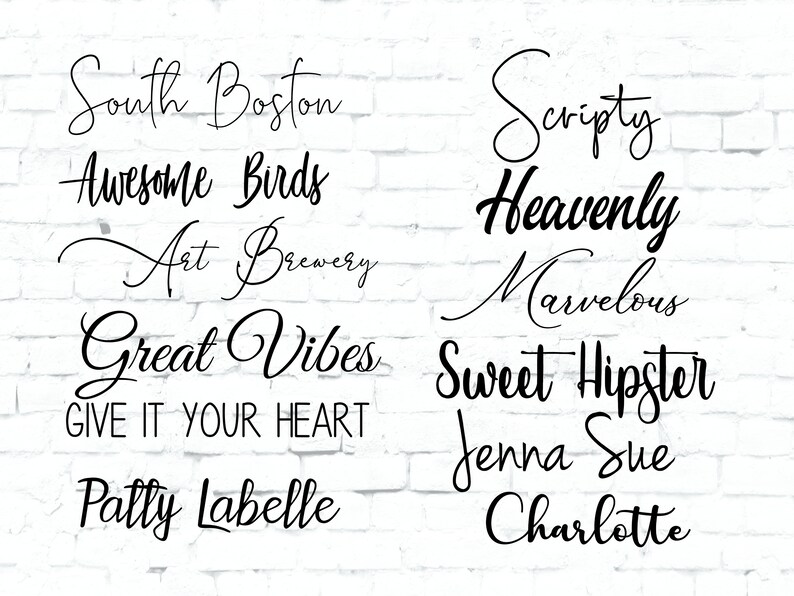 South Boston
Awesome Birds
Art Brewery
Great Vibes
GIVE IT YOUR HEART
Patty Labelle
Scripty
Heavenly
Marvelous
Sweet Hipster
Jenna Sue
Charlotte